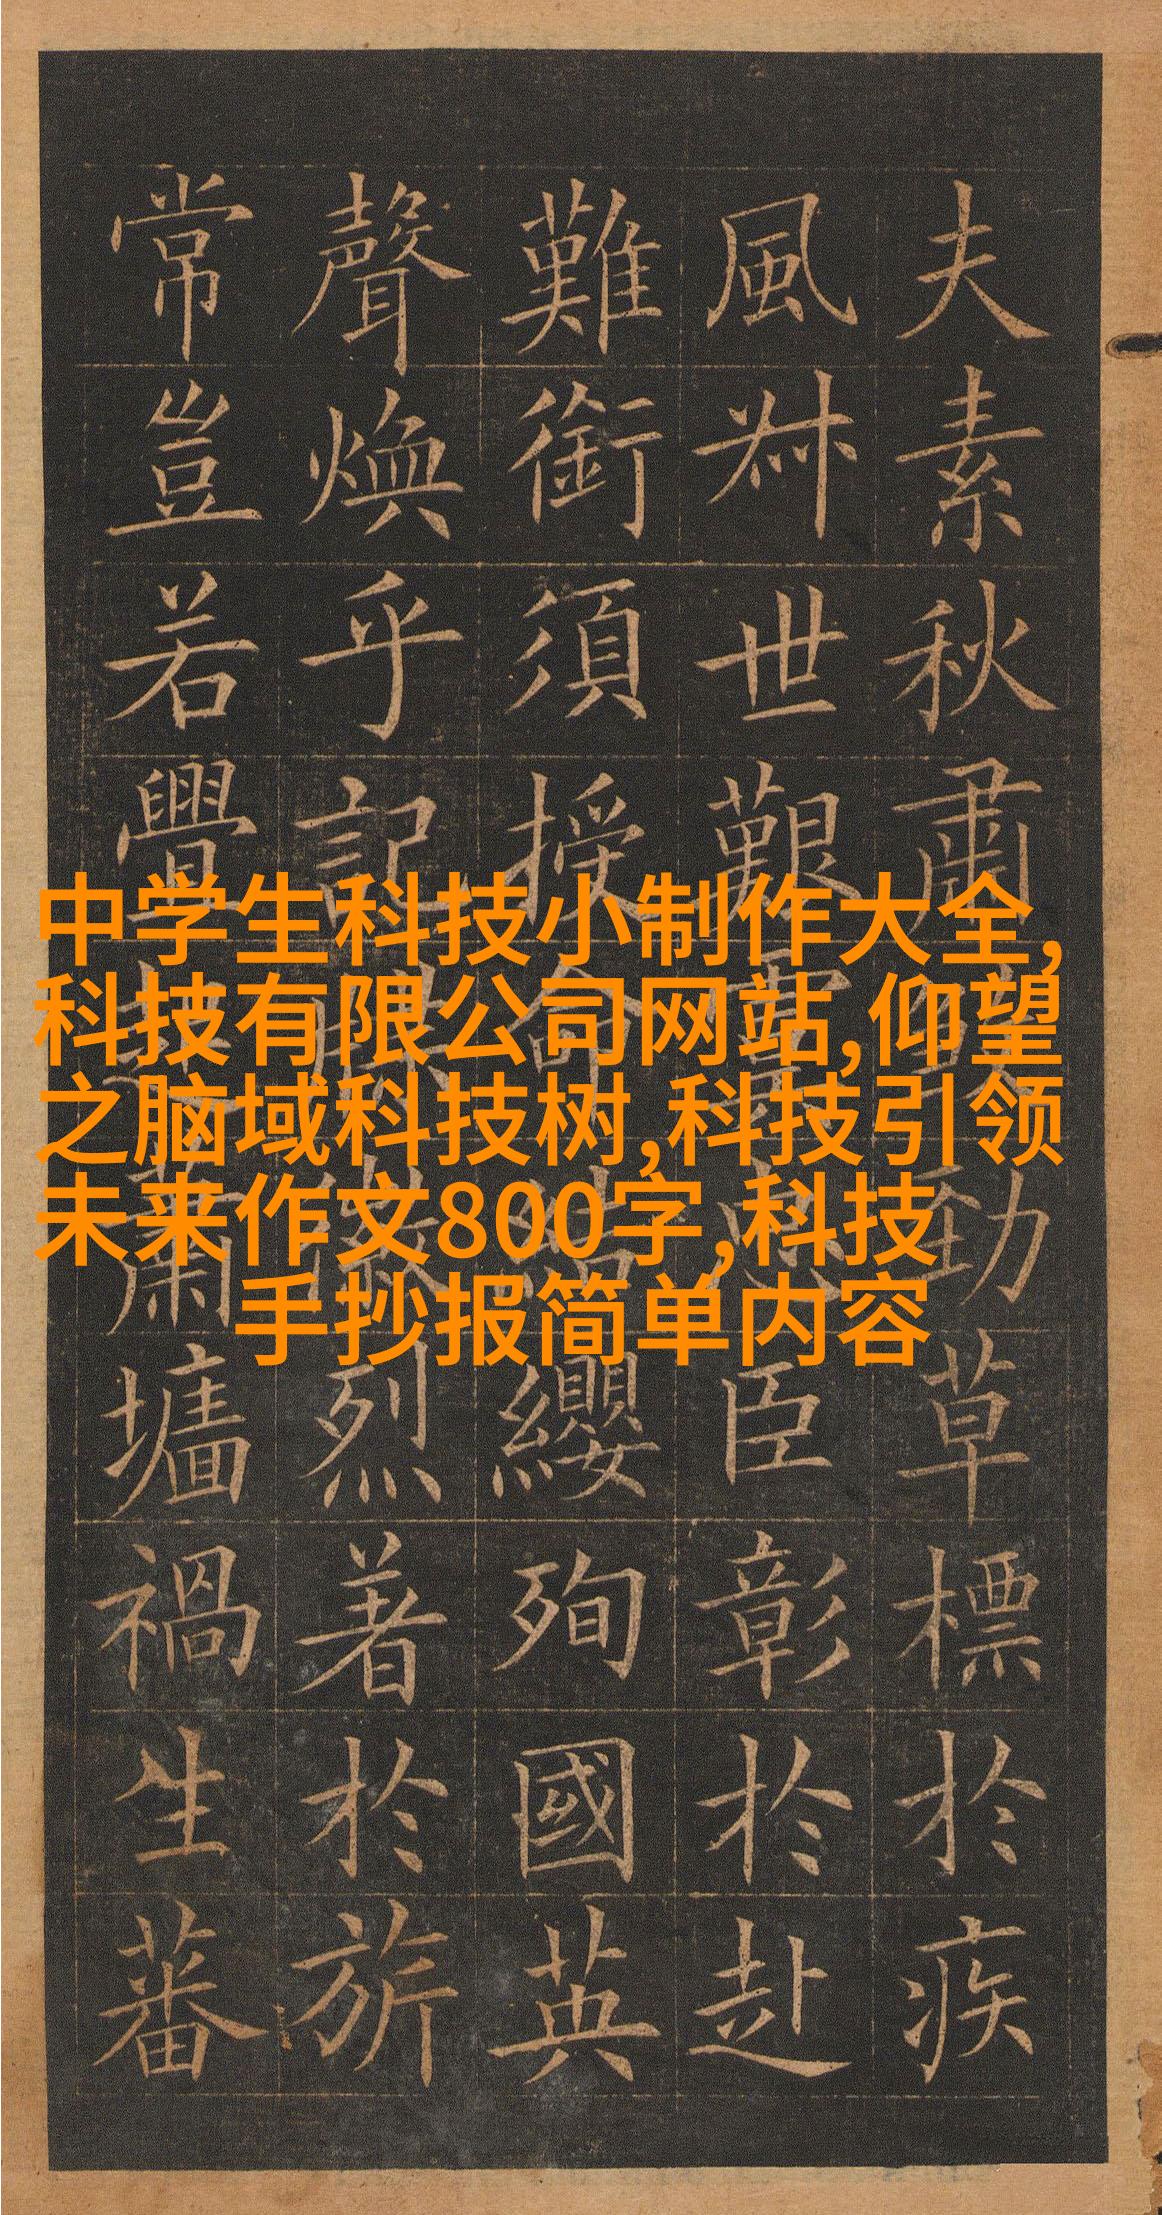 夫素秋肅勁草標於疾
風叔世艱臣彰於赴
難銜須授纓殉國英
聲煥乎記烈著於旂
常豈若釁蕭墻禍生蕃
中学生科技小制作大全,
科技有限公司网站,仰望
之脑域科技树,科技引领
未来作文800字,科技
手抄报简单内容